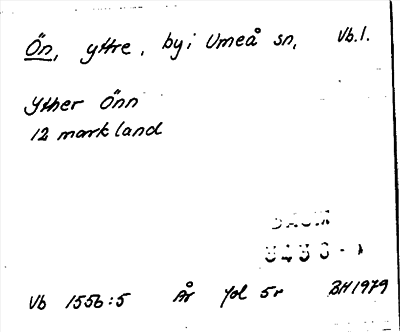 Ön, yttre, by i Umeå sn, Vb.l.
Yther Önn
12 mark land
Vb 1556:5 År fol 5r BH 1979